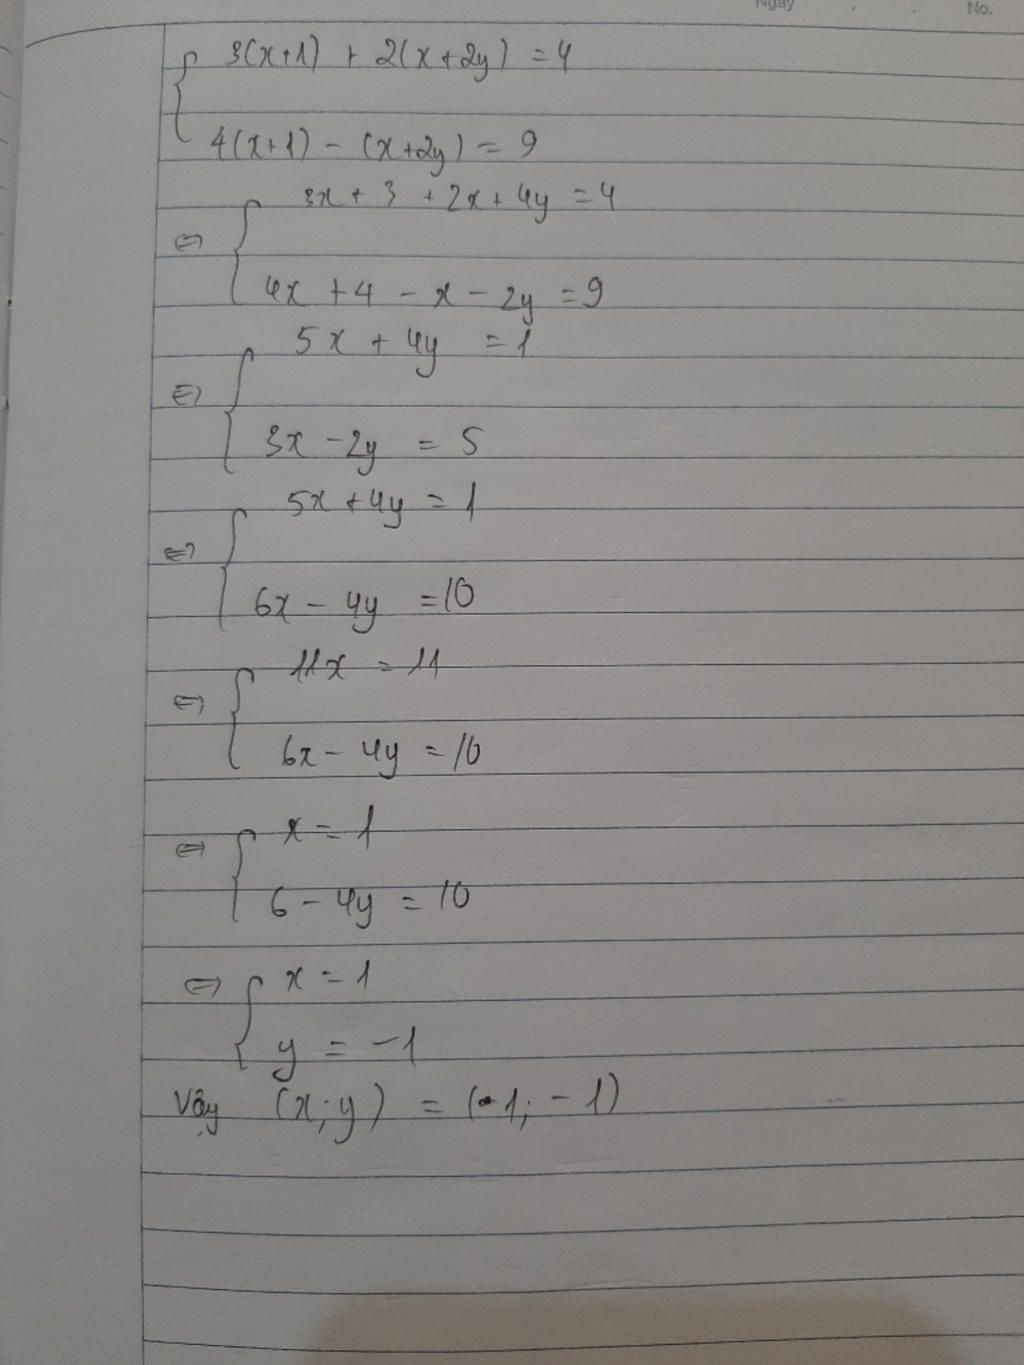 Ngày . . No.
3(x+1) + 2(x+2y) = 4
4(x+1) - (x+2y) = 9
3x + 3 + 2x + 4y = 4
⇔
4x + 4 - x - 2y = 9
5x + 4y = 1
⇔
3x - 2y = 5
5x + 4y = 1
⇔
6x - 4y = 10
11x = 11
⇔
6x - 4y = 10
x = 1
⇔
6 - 4y = 10
⇔ x = 1
y = -1
Vậy (x; y) = (1; -1)